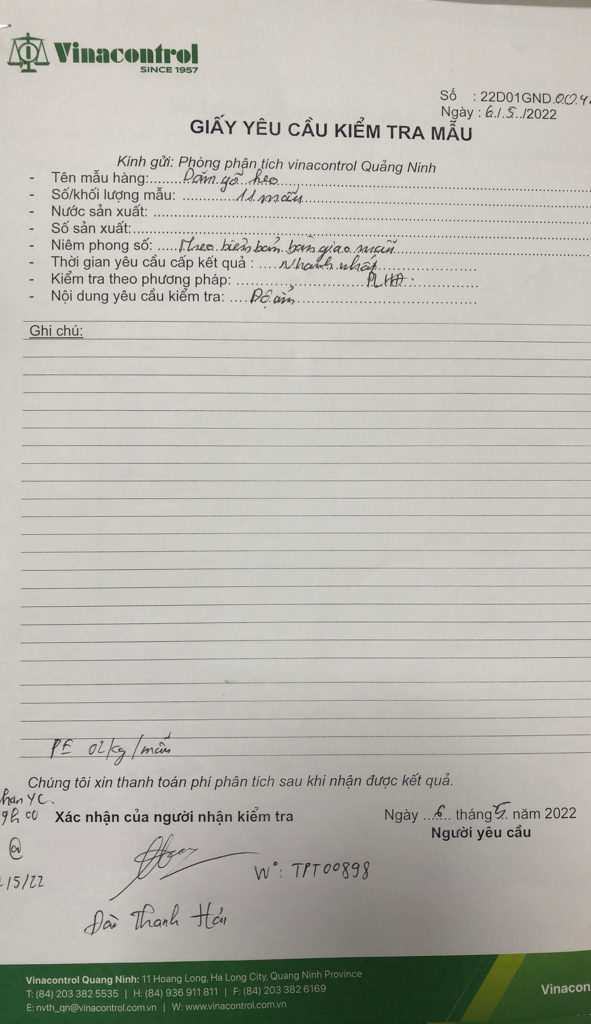 Vinacontrol
SINCE 1957
Số : 22D01GND.00.4
Ngày : 6./.5../2022
GIẤY YÊU CẦU KIỂM TRA MẪU
Kính gửi: Phòng phân tích vinacontrol Quảng Ninh
- Tên mẫu hàng:....... Dăm gỗ keo
- Số/khối lượng mẫu: .......... 11 mẫu
- Nước sản xuất:
- Số sản xuất:
- Niêm phong số: .... Theo biên bản bàn giao mẫu
- Thời gian yêu cầu cấp kết quả : .... Nhanh nhất
- Kiểm tra theo phương pháp:
- Nội dung yêu cầu kiểm tra: .... Độ ẩm
Ghi chú:
PE 02kg/mẫu
Chúng tôi xin thanh toán phí phân tích sau khi nhận được kết quả.
YC.
Xác nhận của người nhận kiểm tra
Ngày ...6... tháng 5. năm 2022
Người yêu cầu
/5/22
N°: TPT00898
Thanh
Vinacontrol Quang Ninh: 11 Hoang Long, Ha Long City, Quang Ninh Province
T: (84) 203 382 5535 | H: (84) 936 911 811 | F: (84) 203 382 6169
E: nvth_qn@vinacontrol.com.vn | W: www.vinacontrol.com.vn
Vinacon